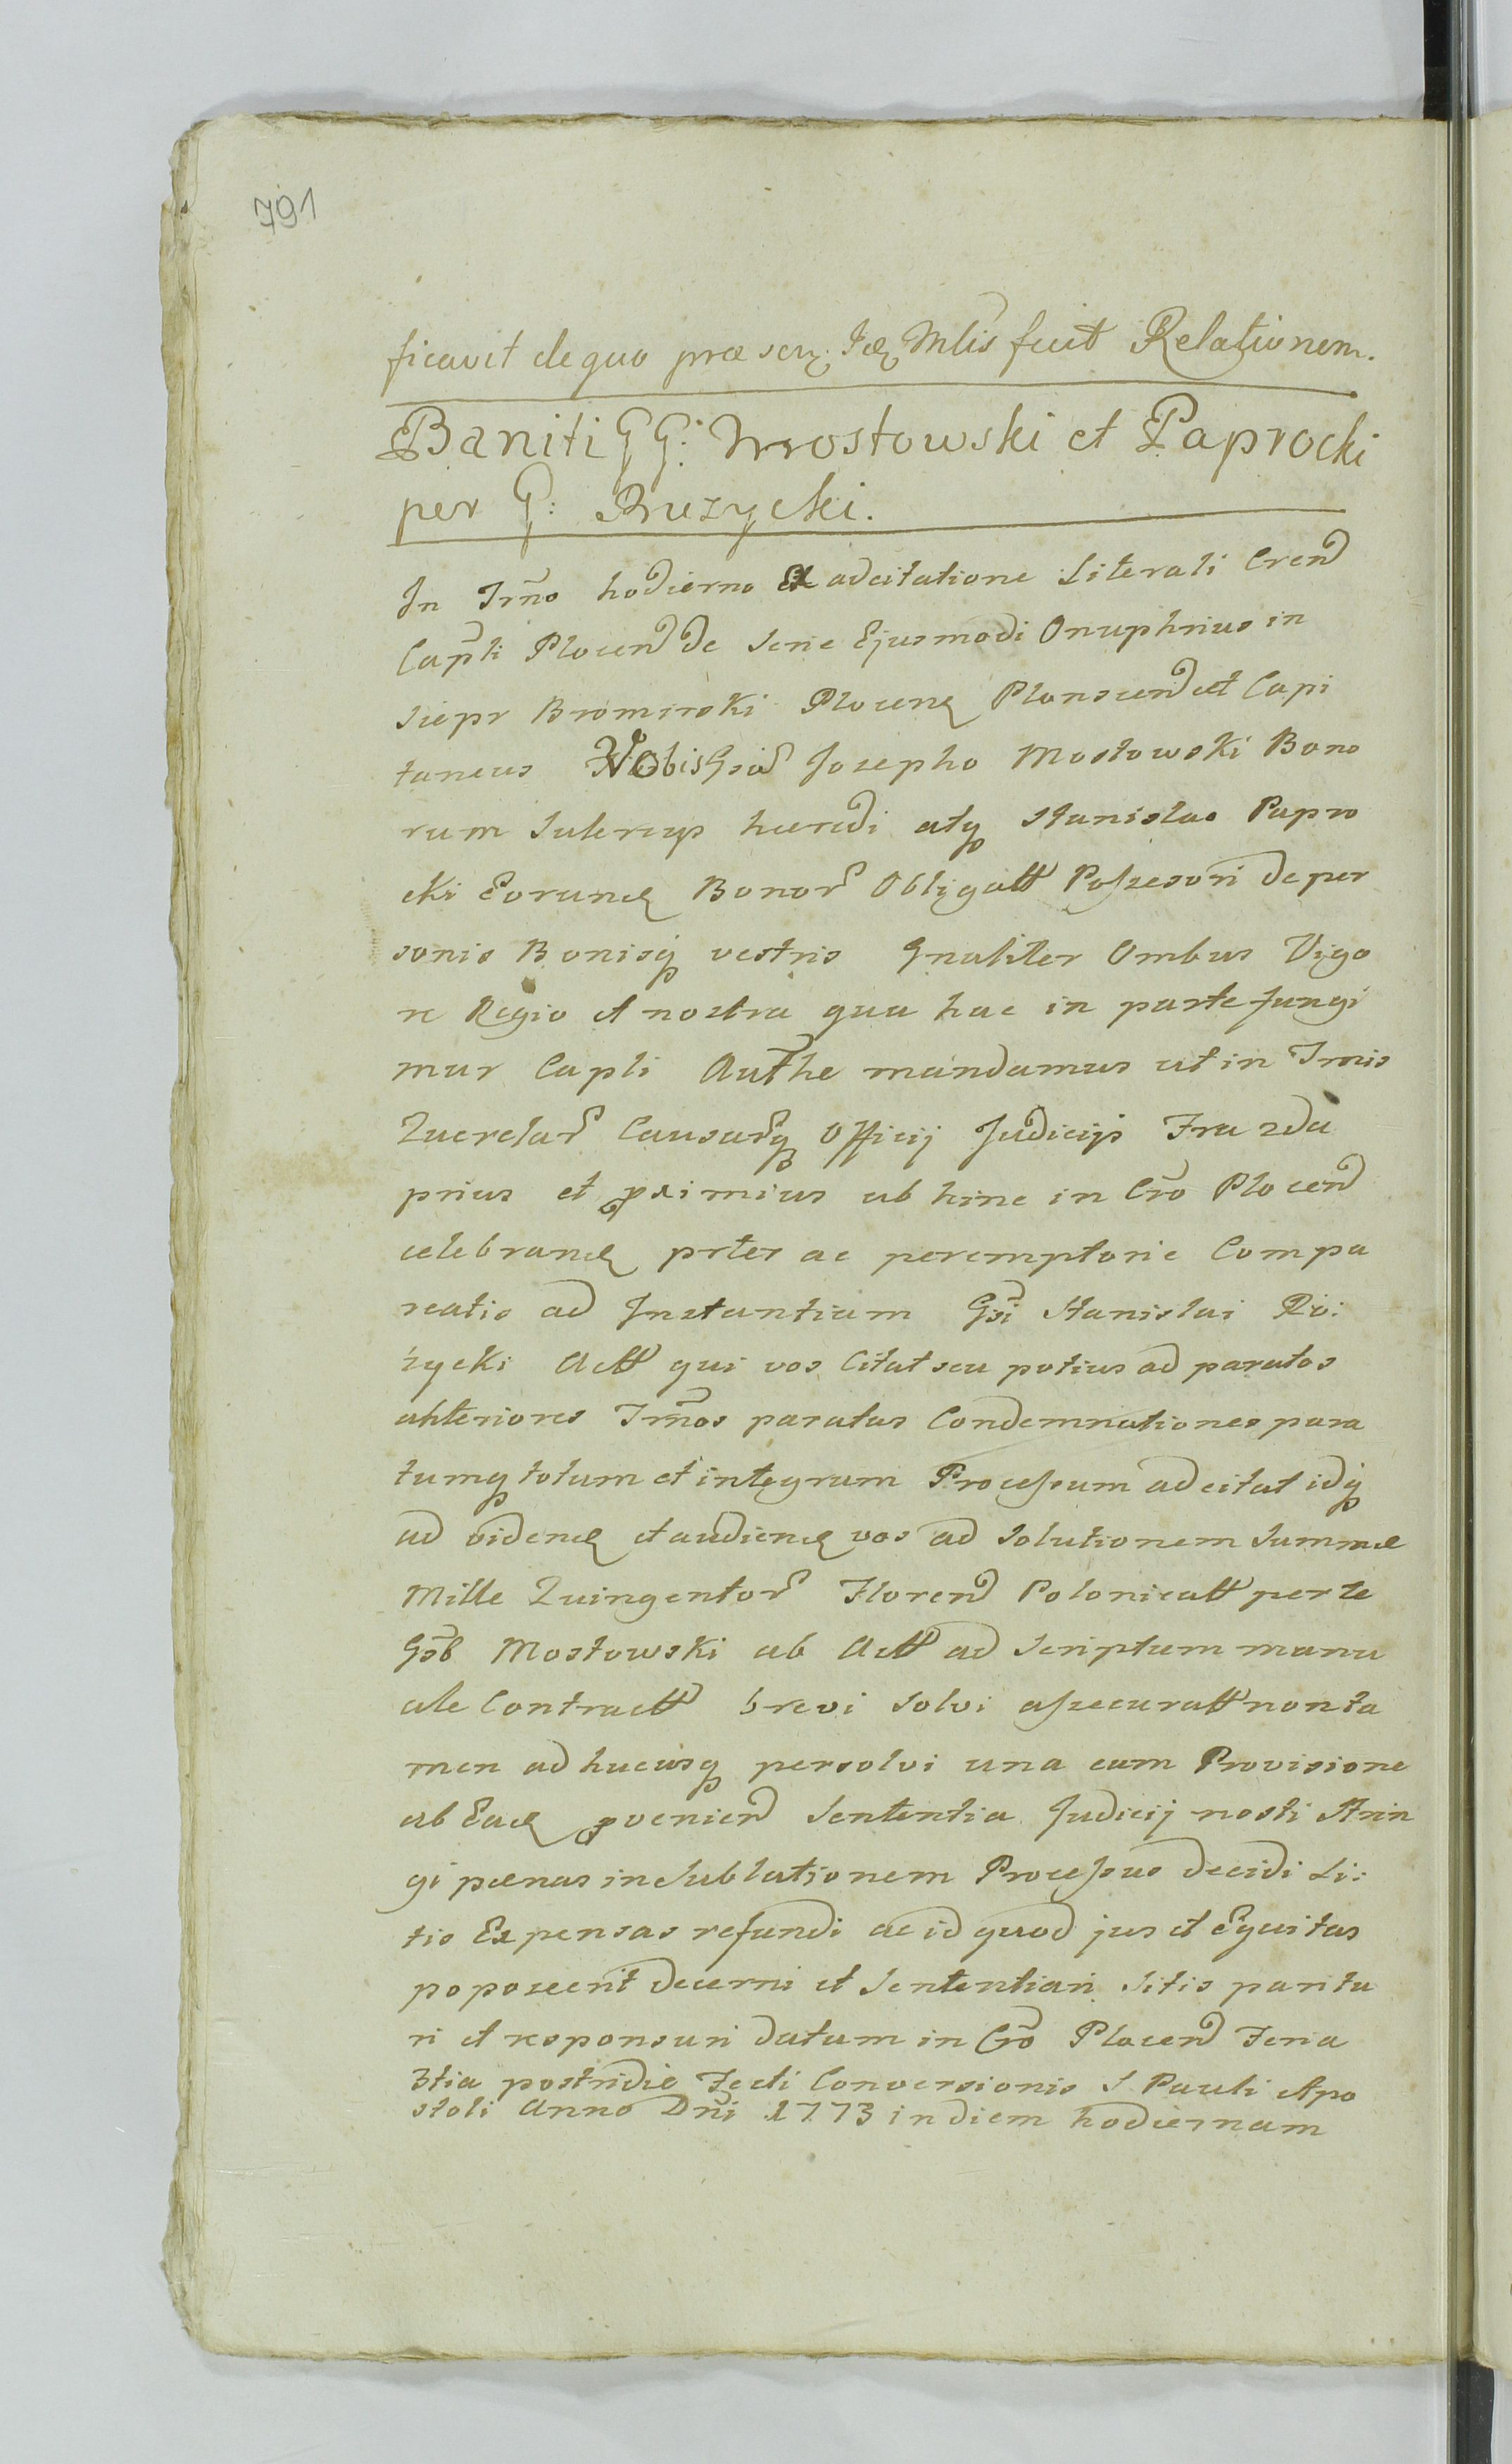 791
ficavit de quo præsenꝫ Jdꝫ Mlis fecit Relationem.
Baniti GG: Mostowski et Paprocki
per G: Ruzycki.
In Trn̄o hodierno Ex adcitatione Literali Cren̄d
Capli̅ Plocen̄ de Serie Ejusmodi Onuphrius in
Siepr Bromirski Plocenꝫ Plonscen̄ et Capi
taneus Vobis Gsis Josepho Mostowski Bono
rum Sulerzys hæredi atqꝫ Stanislao Papro
cki Eorundꝫ Bonor̄ Obligatt Poszesori de per
sonis Bonisqꝫ vestris Gnaliter Ombus Vigo
re Regio et nostra qua hac in parte fungi
mur Capli Auth̅e mandamus ut in Trnis
Querelar̄ Causar̄qꝫ Officij Judicijs Fra 2da
prius et pximius ab hinc in Cr̄o Plocen̄
celebrandꝫ prter ac peremptorie Compa
reatis ad Instantiam Gsi̅ Stanislai Ró:
życki Actt qui vos Citat seu potius ad paratos
ahteriores Trn̄os paratas Condemnationes para
tumqꝫ totum et integrum Processum adcitat idqꝫ
ad videndꝫ et audiendꝫ vos ad Solutionem Summæ
Mille Quingentor̄ Floren̄ Polonicatt per te
Gsb̄ Mostowski ab Actt ad Scriptum manu
ale Contractt brevi Solvi aszecuratt non ta
men ad hucusqꝫ persolvi una cum Provisione
ab Eadꝫ pvenien̄ Sententia Judicij nosti Strin
gi pænas in Sublationem Processus decidi Li:
tis Expensas refundi ac id quod jus et Equitas
poposcerit decerni et Sententiari Sitis paritu
ri et responsuri datum in Cr̄o Plocen̄ Feria
3tia postridie Festi Conversionis S Pauli Apo
stoli Anno Dn̄i 1773 in diem hodiernam